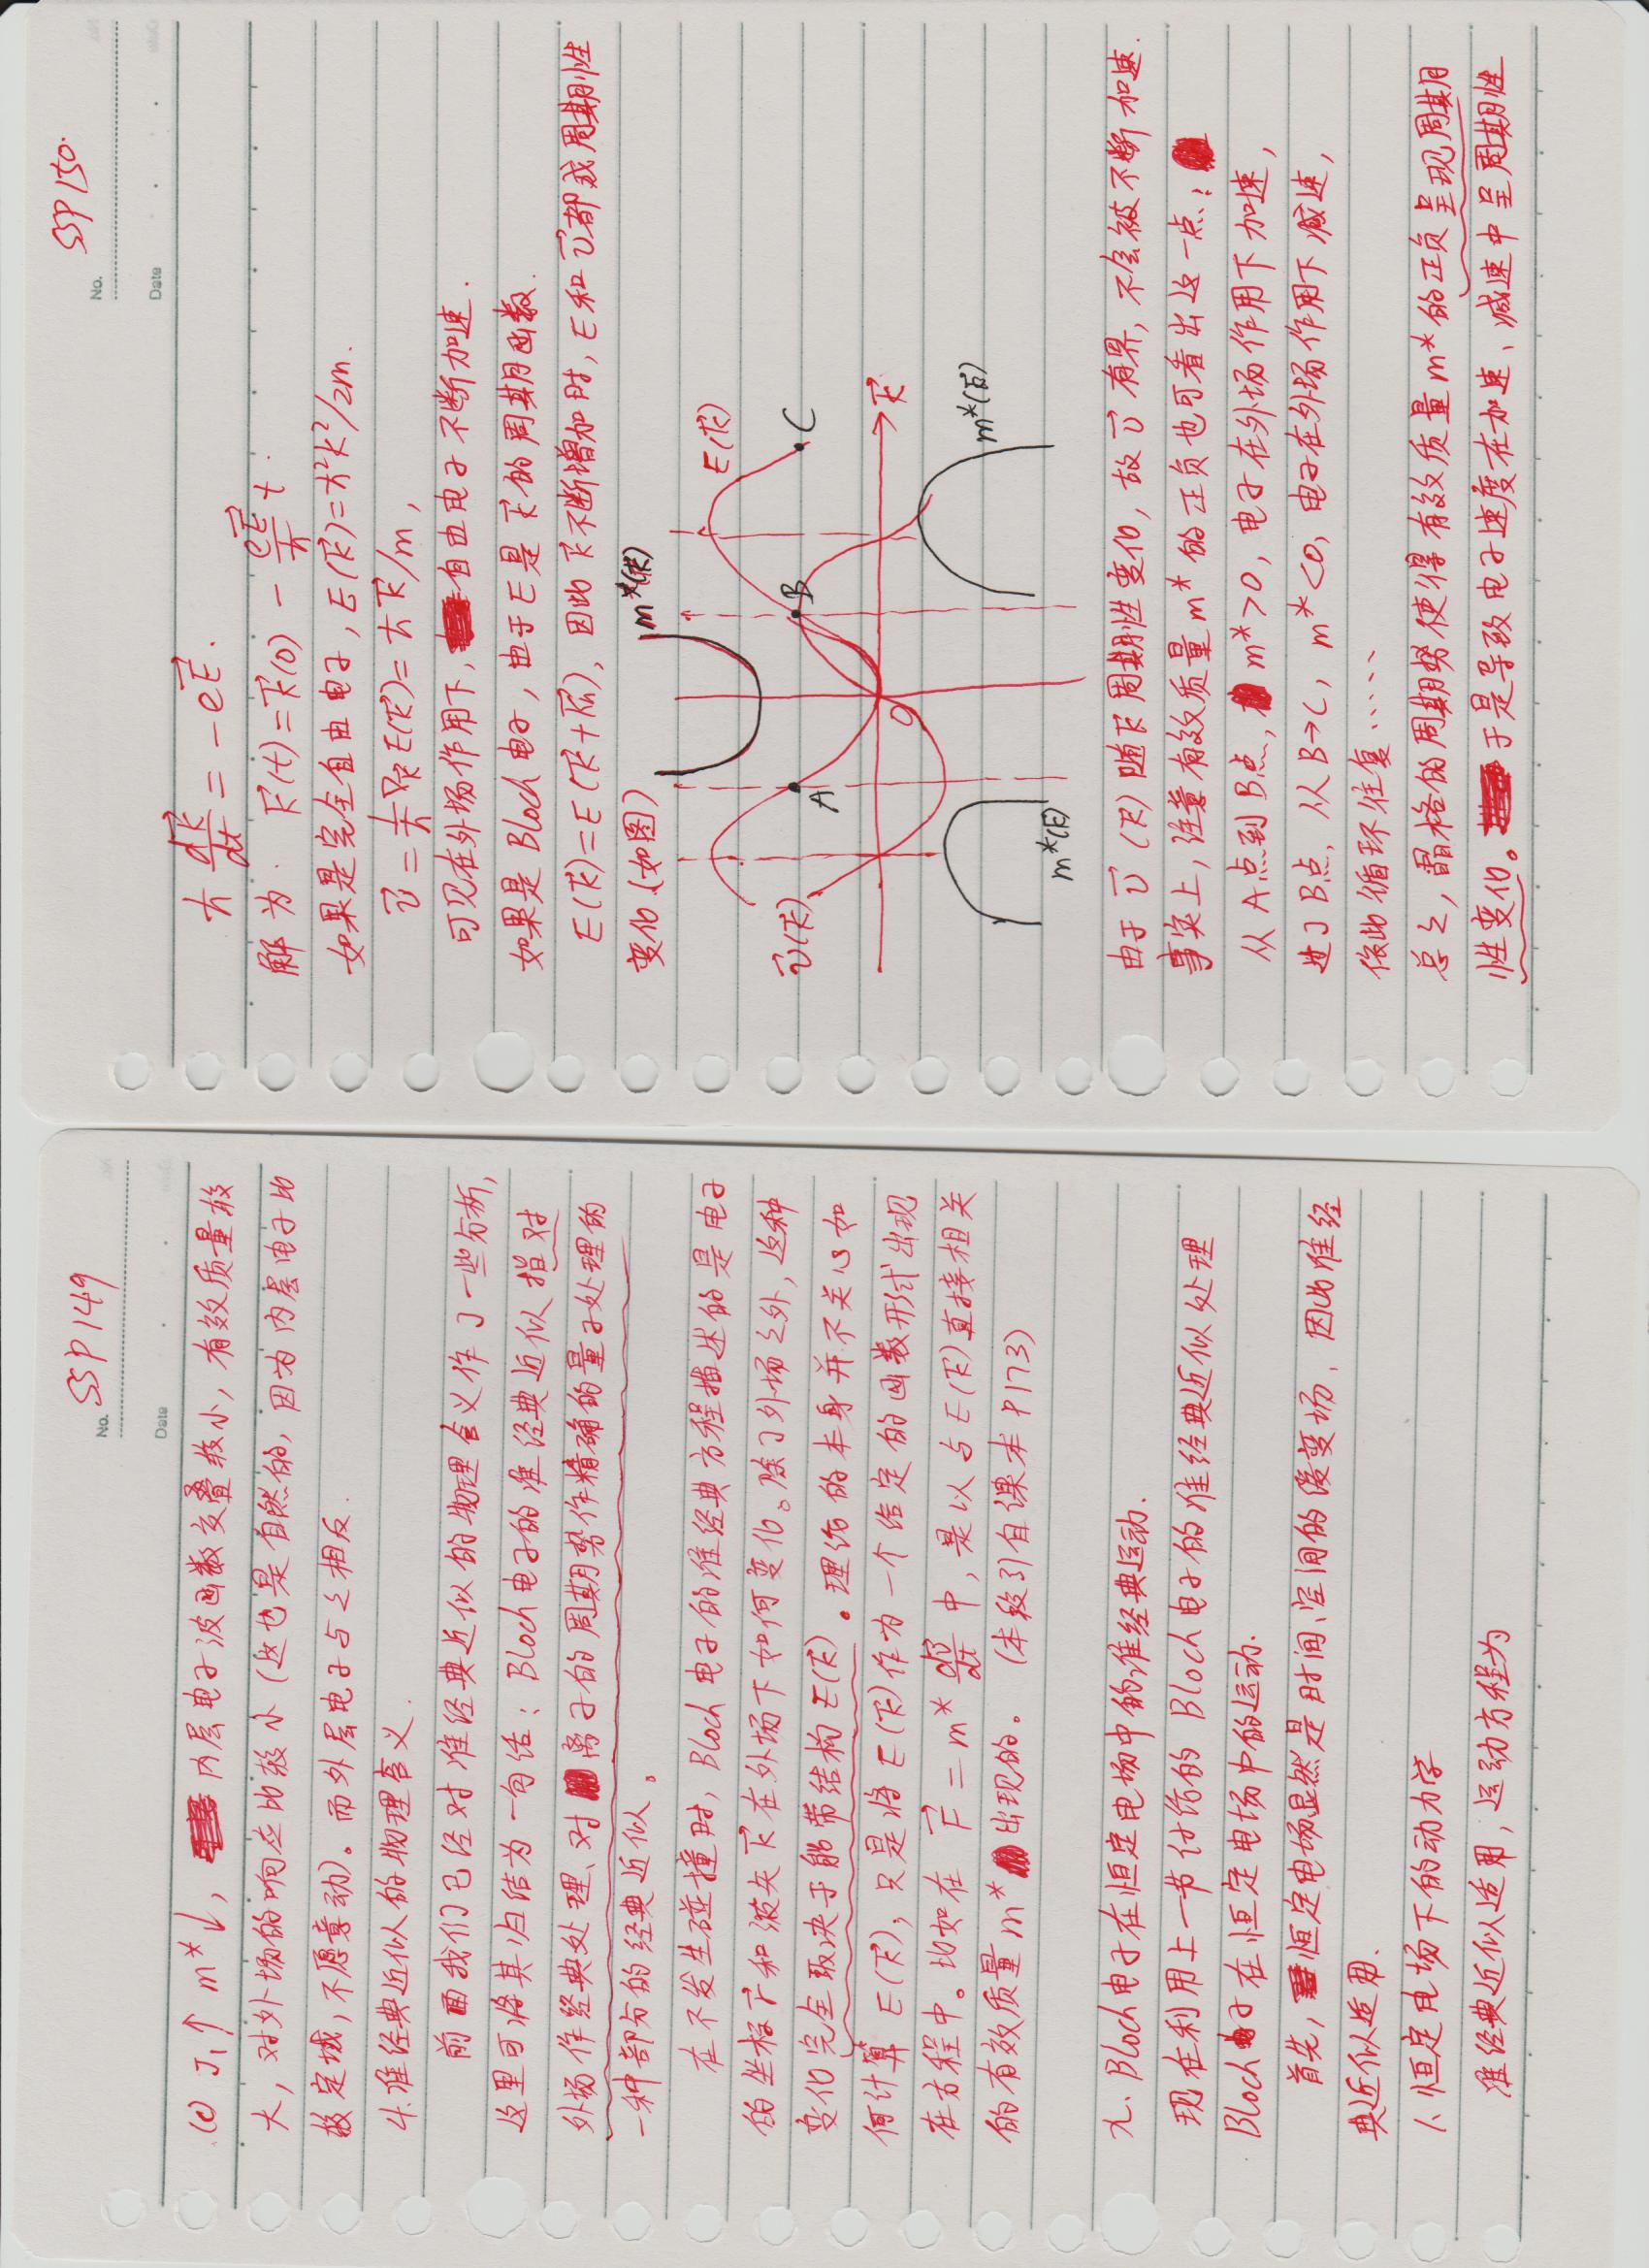 No. SSP 149
Date
(c) J₁↑ m*↓, 内层电子波函数交叠较小, 有效质量较
大, 对外场的响应比较小 (这也是自然的, 因为内层电子比
较定域, 不愿意动)。而外层电子与之相反.
4. 准经典近似的物理含义.
前面我们已经对准经典近似的物理含义作了一些分析,
这里可将其归结为一句话: Bloch电子的准经典近似指对
外场作经典处理、对离子的周期势作精确的量子处理的
一种部分的经典近似。
在不发生碰撞时, Bloch电子的准经典方程描述的是电子
的坐标r⃗和波矢k⃗在外场下如何变化。除了外场之外, 这种
变化完全取决于能带结构E(k⃗)。理论的本身并不关心如
何计算E(k⃗), 只是将E(k⃗)作为一个给定的函数形式出现
在方程中。比如在 F⃗ = m* dv⃗/dt 中, 是以与E(k⃗)直接相关
的有效质量m*出现的。 (本段引自课本P173)
九. Bloch电子在恒定电场中的准经典运动.
现在利用上一节讨论的Bloch电子的准经典近似处理
Bloch电子在恒定电场中的运动.
首先, 恒定电场显然是时间、空间的缓变场, 因此准经
典近似适用.
1. 恒定电场下的动力学
准经典近似适用, 运动方程为
No. SSP 150.
Date
ħ dk⃗/dt = -eE⃗.
解为. k⃗(t) = k⃗(0) - eE⃗/ħ t.
如果是完全自由电子, E(k⃗) = ħ²k²/2m.
v⃗ = 1/ħ ∇k⃗ E(k⃗) = ħk⃗/m,
可见在外场作用下, 自由电子不断加速.
如果是Bloch电子, 由于E是k⃗的周期函数.
E(k⃗) = E(k⃗+K⃗n), 因此k⃗不断增加时, E和v⃗都成周期性
变化.(如图)
m*(k⃗)
E(k⃗)
v⃗(k⃗)
A
B
C
O
k⃗
m*(k⃗)
m*(k⃗)
由于v⃗(k⃗)随k⃗周期性变化, 故v⃗有界, 不会被不断加速.
事实上, 注意有效质量m*的正负也可看出这一点:
从A点到B点, m*>0, 电子在外场作用下加速,
过了B点, 从B→C, m*<0, 电子在外场作用下减速,
依此循环往复……
总之, 晶格的周期势使得有效质量m*的正负呈现周期
性变化。于是导致电子速度在加速、减速中呈周期性